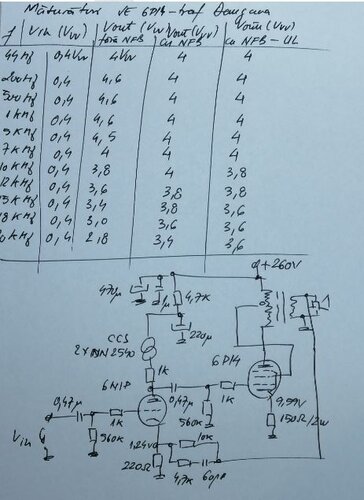 Măsurători SE 6P14 - traf
f Vin (Vvv) Vout (Vvv) fără NFB Vout (Vvv) cu NFB Vout (Vvv) cu NFB - UL
44Hz 0,4Vvv 4Vvv 4 4
200Hz 0,4 4,6 4 4
500Hz 0,4 4,6 4 4
1KHz 0,4 4,6 4 4
5KHz 0,4 4,5 4 4
7KHz 0,4 4 4 4
10KHz 0,4 3,8 4 3,8
12KHz 0,4 3,6 3,8 3,8
15KHz 0,4 3,4 3,8 3,6
18KHz 0,4 3,0 3,6 3,6
20KHz 0,4 2,8 3,4 3,6
+260V
470µ
1µ
4,7K
220µ
CCS
2x DN2540
6P14
1K
6N1P
0,47µ
0,47µ
1K
9,99V
1K
560K
560K
150Ω/2W
Vin
1,24V
10K
220Ω
4,7K
60pF